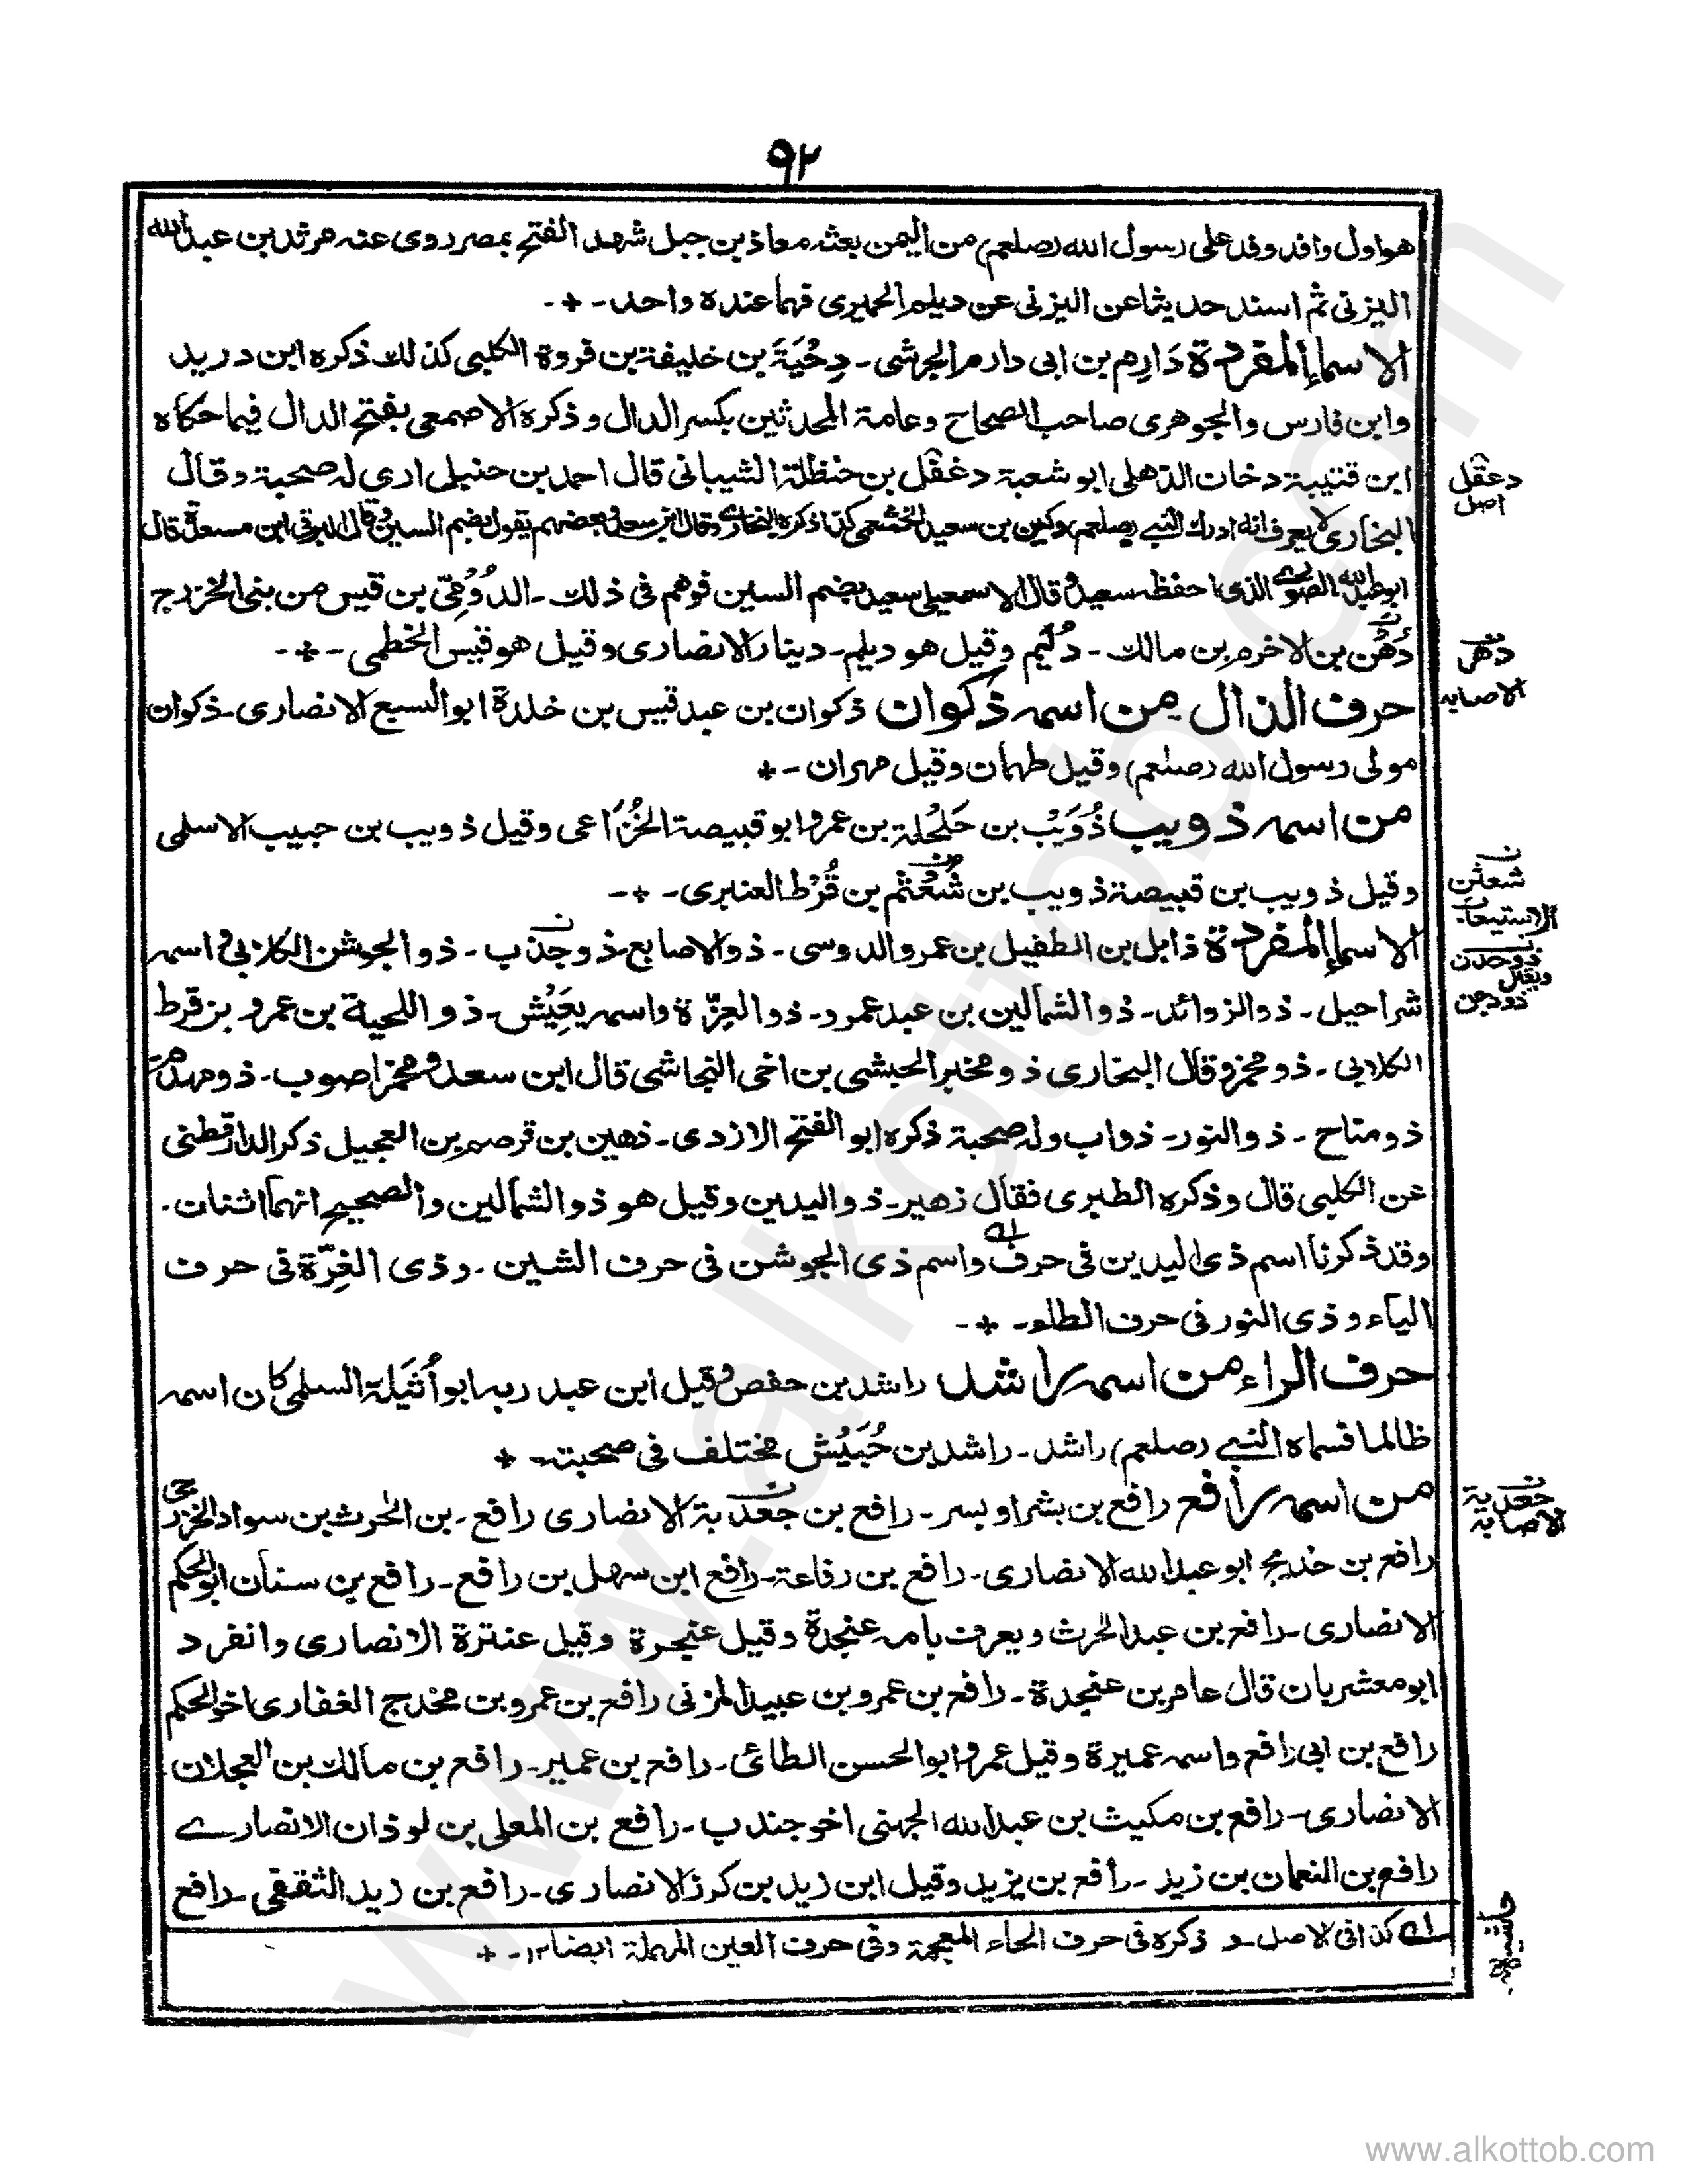 ٩٢
هو اول وافد وفد على رسول الله (صلعم) من اليمن بعثه معاذ بن جبل شهد الفتح بمصر روى عنه مرثد بن عبد الله
اليزنى ثم اسند حديثا عن اليزنى عن ديلم الحميرى فهما عنده واحد -
الاسماء المفردة دَارِم بن ابى دارم الجرشى - دِحْيَةَ بن خليفة بن فروة الكلبى كذلك ذكره ابن دريد
وابن فارس والجوهرى صاحب الصحاح وعامة المحدثين بكسر الدال وذكره الاصمعى بفتح الدال فيما حكاه
ابن قتيبة دخان الذهلى ابو شعبة دغفل بن حنظلة الشيبانى قال احمد بن حنبل ارى له صحبة وقال
البخارى لا يعرف انه ادرك النبى (صلعم) دكين بن سعيد الخثعمى كذا ذكره البخارى وقال ابن سعد وبعضهم يقول بضم السين وقال البرقى ابن مسعدة قال
ابو عبد الله الصورى الذى احفظه سعيد وقال الاسمعيلى سعيد بضم السين فوهم فى ذلك - الدُوْمِىّ بن قيس من بنى الخزرج
دَهْن بن الاخرم بن مالك - دُلَيم وقيل هو ديلم - دينار الانصارى وقيل هو قيس الخطمى -
حرف الذال من اسمه ذكوان ذكوان بن عبد قيس بن خلدة ابو السبع الانصارى - ذكوان
مولى رسول الله (صلعم) وقيل طهمان وقيل مهران -
من اسمه ذويب ذُوَيْب بن حَلْحَلة بن عمرو ابو قبيصة الخُزَاعى وقيل ذويب بن حبيب الاسلمى
وقيل ذويب بن قبيصة ذويب بن شُعْثم بن قُرْط العنبرى -
الاسماء المفردة ذابل بن الطفيل بن عمرو الدوسى - ذو الاصابع - ذو جذب - ذو الجوشن الكلابى واسمه
شراحيل - ذو الزوائد - ذو الشمالين بن عبد عمرو - ذو الغِرّة واسمه يعَيْش - ذو اللحية بن عمرو بن قرط
الكلابى - ذو مخمر وقال البخارى ذو مخبر الحبشى بن اخى النجاشى قال ابن سعد ومخمر اصوب - ذو مهدم
ذو مناح - ذو النور - ذواب وله صحبة ذكره ابو الفتح الازدى - ذهين بن قرضم بن العجيل ذكر الدارقطنى
عن الكلبى قال وذكره الطبرى فقال زهير - ذو اليدين وقيل هو ذو الشمالين والصحيح انهما اثنان .
وقد ذكرنا اسم ذى اليدين فى حرف واسم ذى الجوشن فى حرف الشين - وذى الغِرّة فى حرف
الياء وذى النور فى حرف الطاء -
حرف الراء من اسمه راشد راشد بن حفص وقيل ابن عبد ربه ابو أُثَيلة السلمى كان اسمه
ظالما فسماه النبى (صلعم) راشد - راشد بن حُبَيْش مختلف فى صحبته -
من اسمه رافع رافع بن بشر او بسر - رافع بن جعد بة الانصارى رافع - بن الحرث بن سواد الخزرجى
رافع بن خديج ابو عبد الله الانصارى - رافع بن رفاعة - رافع ابن سهل بن رافع - رافع بن سنان ابو الحكم
الانصارى - رافع بن عبد الحرث ويعرف بامه عنجدة وقيل عنجرة وقيل عنترة الانصارى وانفرد
ابو معشر بان قال عامر بن عنجدة - رافع بن عمرو بن عبيد المزنى رافع بن عمرو بن مخدج الغفارى اخو الحكم
رافع بن ابى رافع واسمه عميرة وقيل عمرو ابو الحسن الطائى - رافع بن عمير - رافع بن مالك بن العجلان
الانصارى - رافع بن مكيث بن عبد الله الجهنى اخو جندب - رافع بن المعلى بن لوذان الانصارى
رافع بن النعمان بن زيد - رافع بن يزيد وقيل ابن زيد بن كرز الانصارى - رافع بن زيد الثقفى - رافع
له كذا فى الاصل - و ذكره فى حرف الخاء المعجمة وفى حرف العين المهملة ايضا ١٢ -
دعقل
اصل
دهر
الاصابه
شعثن
الاستيعاب
ذوجدن
ويقال
ذودجن
جعدبة
الاصابه
حاشيه
www.alkottob.com